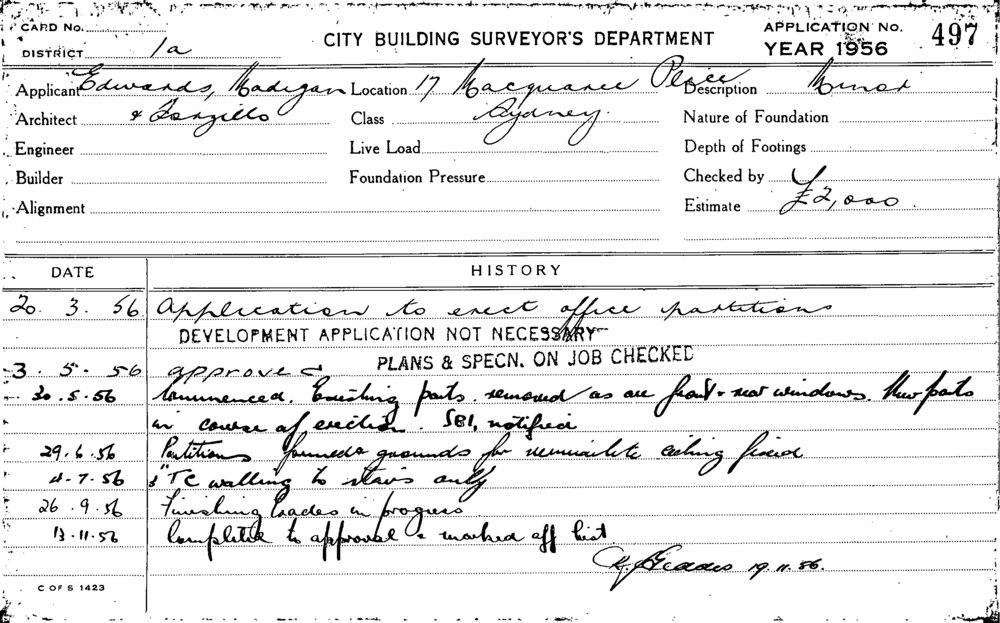 CARD No.
DISTRICT 1a
CITY BUILDING SURVEYOR'S DEPARTMENT
APPLICATION No. 497
YEAR 1956
Applicant Edwards, Madigan Location 17 Macquarie Place Description Minor
Architect & Torzillo Class Sydney. Nature of Foundation
Engineer Live Load Depth of Footings
Builder Foundation Pressure Checked by
Alignment Estimate £2,000.
DATE HISTORY
20. 3. 56 Application to erect office partitions
DEVELOPMENT APPLICATION NOT NECESSARY
PLANS & SPECN. ON JOB CHECKED
3. 5. 56 approved
30.5.56 Commenced. Existing parts. removed as are front & rear windows. New parts
in course of erection. SBI, notified
29.6.56 Partitions formed & grounds for ceiling fixed
4.7.56 3" TC walling to stairs only
26.9.56 Finishing trades in progress
13.11.56 Completed to approval & marked off list
Geddes 19.11.56.
C OF S 1423